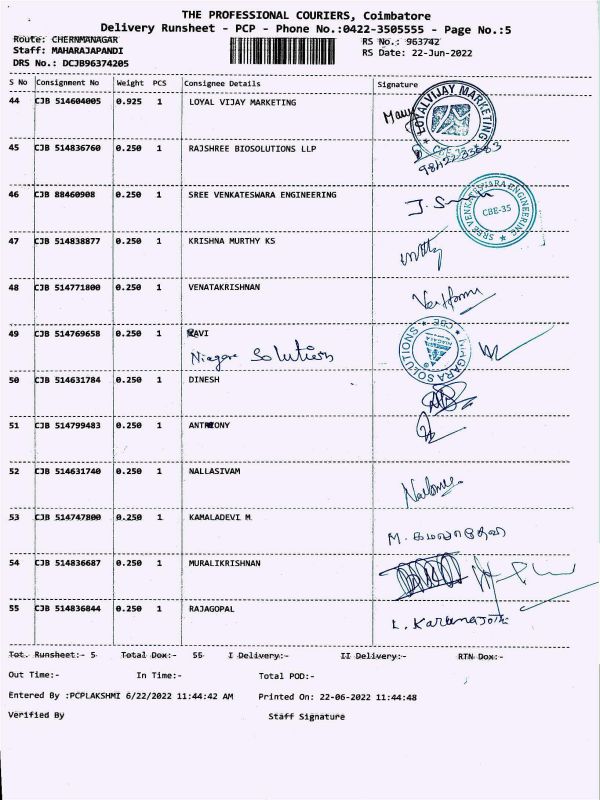 THE PROFESSIONAL COURIERS, Coimbatore
Delivery Runsheet - PCP - Phone No.:0422-3505555 - Page No.:5
Route: CHERNMANAGAR RS No.: 963742
Staff: MAHARAJAPANDI RS Date: 22-Jun-2022
DRS No.: DCJB96374205
S No Consignment No Weight PCS Consignee Details Signature
44 CJB 514604005 0.925 1 LOYAL VIJAY MARKETING
LOYALVIJAY MARKETING
45 CJB 514836760 0.250 1 RAJSHREE BIOSOLUTIONS LLP
46 CJB 88460908 0.250 1 SREE VENKATESWARA ENGINEERING
SREE VENKATESWARA ENGINEERING
CBE-35
47 CJB 514838877 0.250 1 KRISHNA MURTHY KS
48 CJB 514771800 0.250 1 VENATAKRISHNAN
49 CJB 514769658 0.250 1 RAVI
Niagara Solutions
NIAGARA SOLUTIONS CBE
50 CJB 514631784 0.250 1 DINESH
51 CJB 514799483 0.250 1 ANTHONY
52 CJB 514631740 0.250 1 NALLASIVAM
53 CJB 514747800 0.250 1 KAMALADEVI M
M. கமலாதேவி
54 CJB 514836687 0.250 1 MURALIKRISHNAN
55 CJB 514836844 0.250 1 RAJAGOPAL
Tot. Runsheet:- 5 Total Dox:- 55 I Delivery:- II Delivery:- RTN Dox:-
Out Time:- In Time:- Total POD:-
Entered By :PCPLAKSHMI 6/22/2022 11:44:42 AM Printed On: 22-06-2022 11:44:48
Verified By Staff Signature